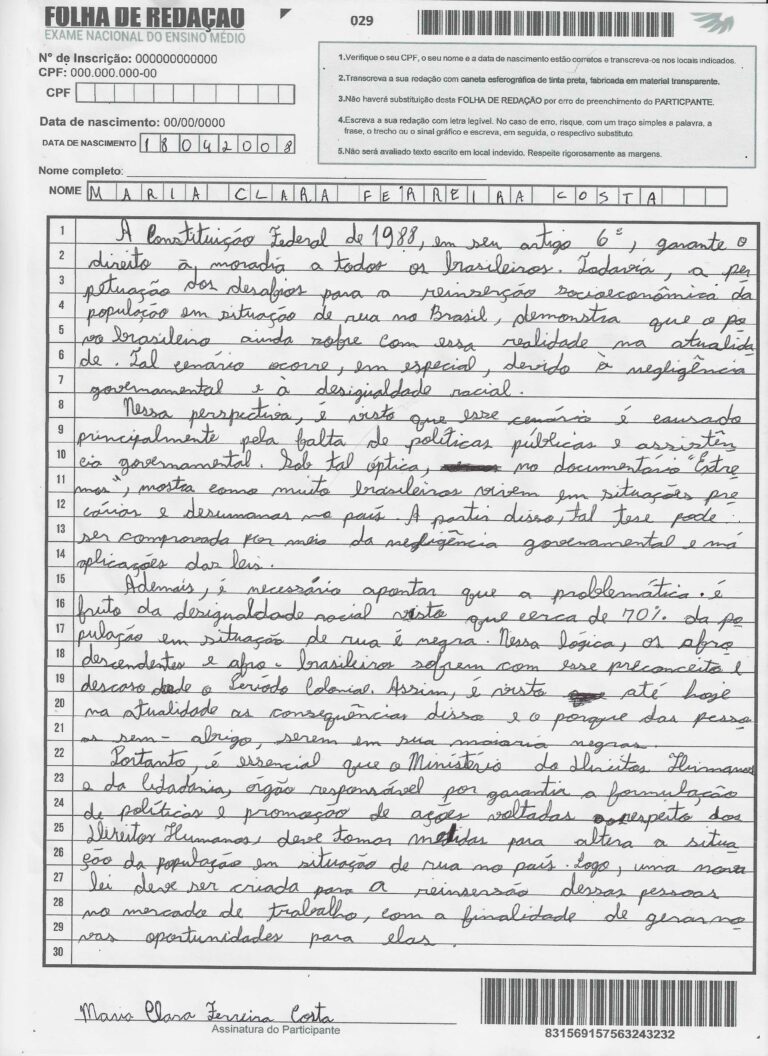 FOLHA DE REDAÇÃO
EXAME NACIONAL DO ENSINO MÉDIO
029
Nº de Inscrição: 000000000000
CPF: 000.000.000-00
CPF
Data de nascimento: 00/00/0000
DATA DE NASCIMENTO 18042008
1.Verifique o seu CPF, o seu nome e a data de nascimento estão corretos e transcreva-os nos locais indicados.
2.Transcreva a sua redação com caneta esferográfica de tinta preta, fabricada em material transparente.
3.Não haverá substituição desta FOLHA DE REDAÇÃO por erro de preenchimento do PARTICIPANTE.
4.Escreva a sua redação com letra legível. No caso de erro, risque, com um traço simples a palavra, a
frase, o trecho ou o sinal gráfico e escreva, em seguida, o respectivo substituto
5.Não será avaliado texto escrito em local indevido. Respeite rigorosamente as margens.
Nome completo:
NOME MARIA CLARA FERREIRA COSTA
1 A Constituição Federal de 1988, em seu artigo 6º, garante o
2 direito à moradia a todos os brasileiros. Todavia, a per
3 petuação dos desafios para a reinserção socioeconômica da
4 população em situação de rua no Brasil, demonstra que o po
5 vo brasileiro ainda sofre com essa realidade na atualida
6 de. Tal cenário ocorre, em especial, devido à negligência
7 governamental e à desigualdade racial.
8 Nessa perspectiva, é visto que esse cenário é causado
9 principalmente pela falta de políticas públicas e assistên
10 cia governamental. Sob tal óptica, no documentário "Extre
11 mos", mostra como muito brasileiros vivem em situações pre
12 cárias e desumanas no país. A partir disso, tal tese pode
13 ser comprovada por meio da negligência governamental e má
14 aplicações das leis.
15 Ademais, é necessário apontar que a problemática é
16 fruto da desigualdade racial visto que cerca de 70% da po
17 pulação em situação de rua é negra. Nessa lógica, os afro
18 descendentes e afro-brasileiros sofrem com esse preconceito e
19 descaso desde o Período Colonial. Assim, é visto até hoje
20 na atualidade as consequências disso e o porque das pesso
21 as sem-abrigo, serem em sua maioria negras.
22 Portanto, é essencial que o Ministério do Direitos Humanos
23 e da Cidadania, órgão responsável por garantir a formulação
24 de políticas e promoção de ações voltadas ao respeito dos
25 Direitos Humanos, deve tomar medidas para altera a situa
26 ção da população em situação de rua no país. Logo, uma nova
27 lei deve ser criada para a reinsersão dessas pessoas
28 no mercado de trabalho, com a finalidade de gerar no
29 vas oportunidades para elas.
30
Maria Clara Ferreira Costa
Assinatura do Participante
831569157563243232